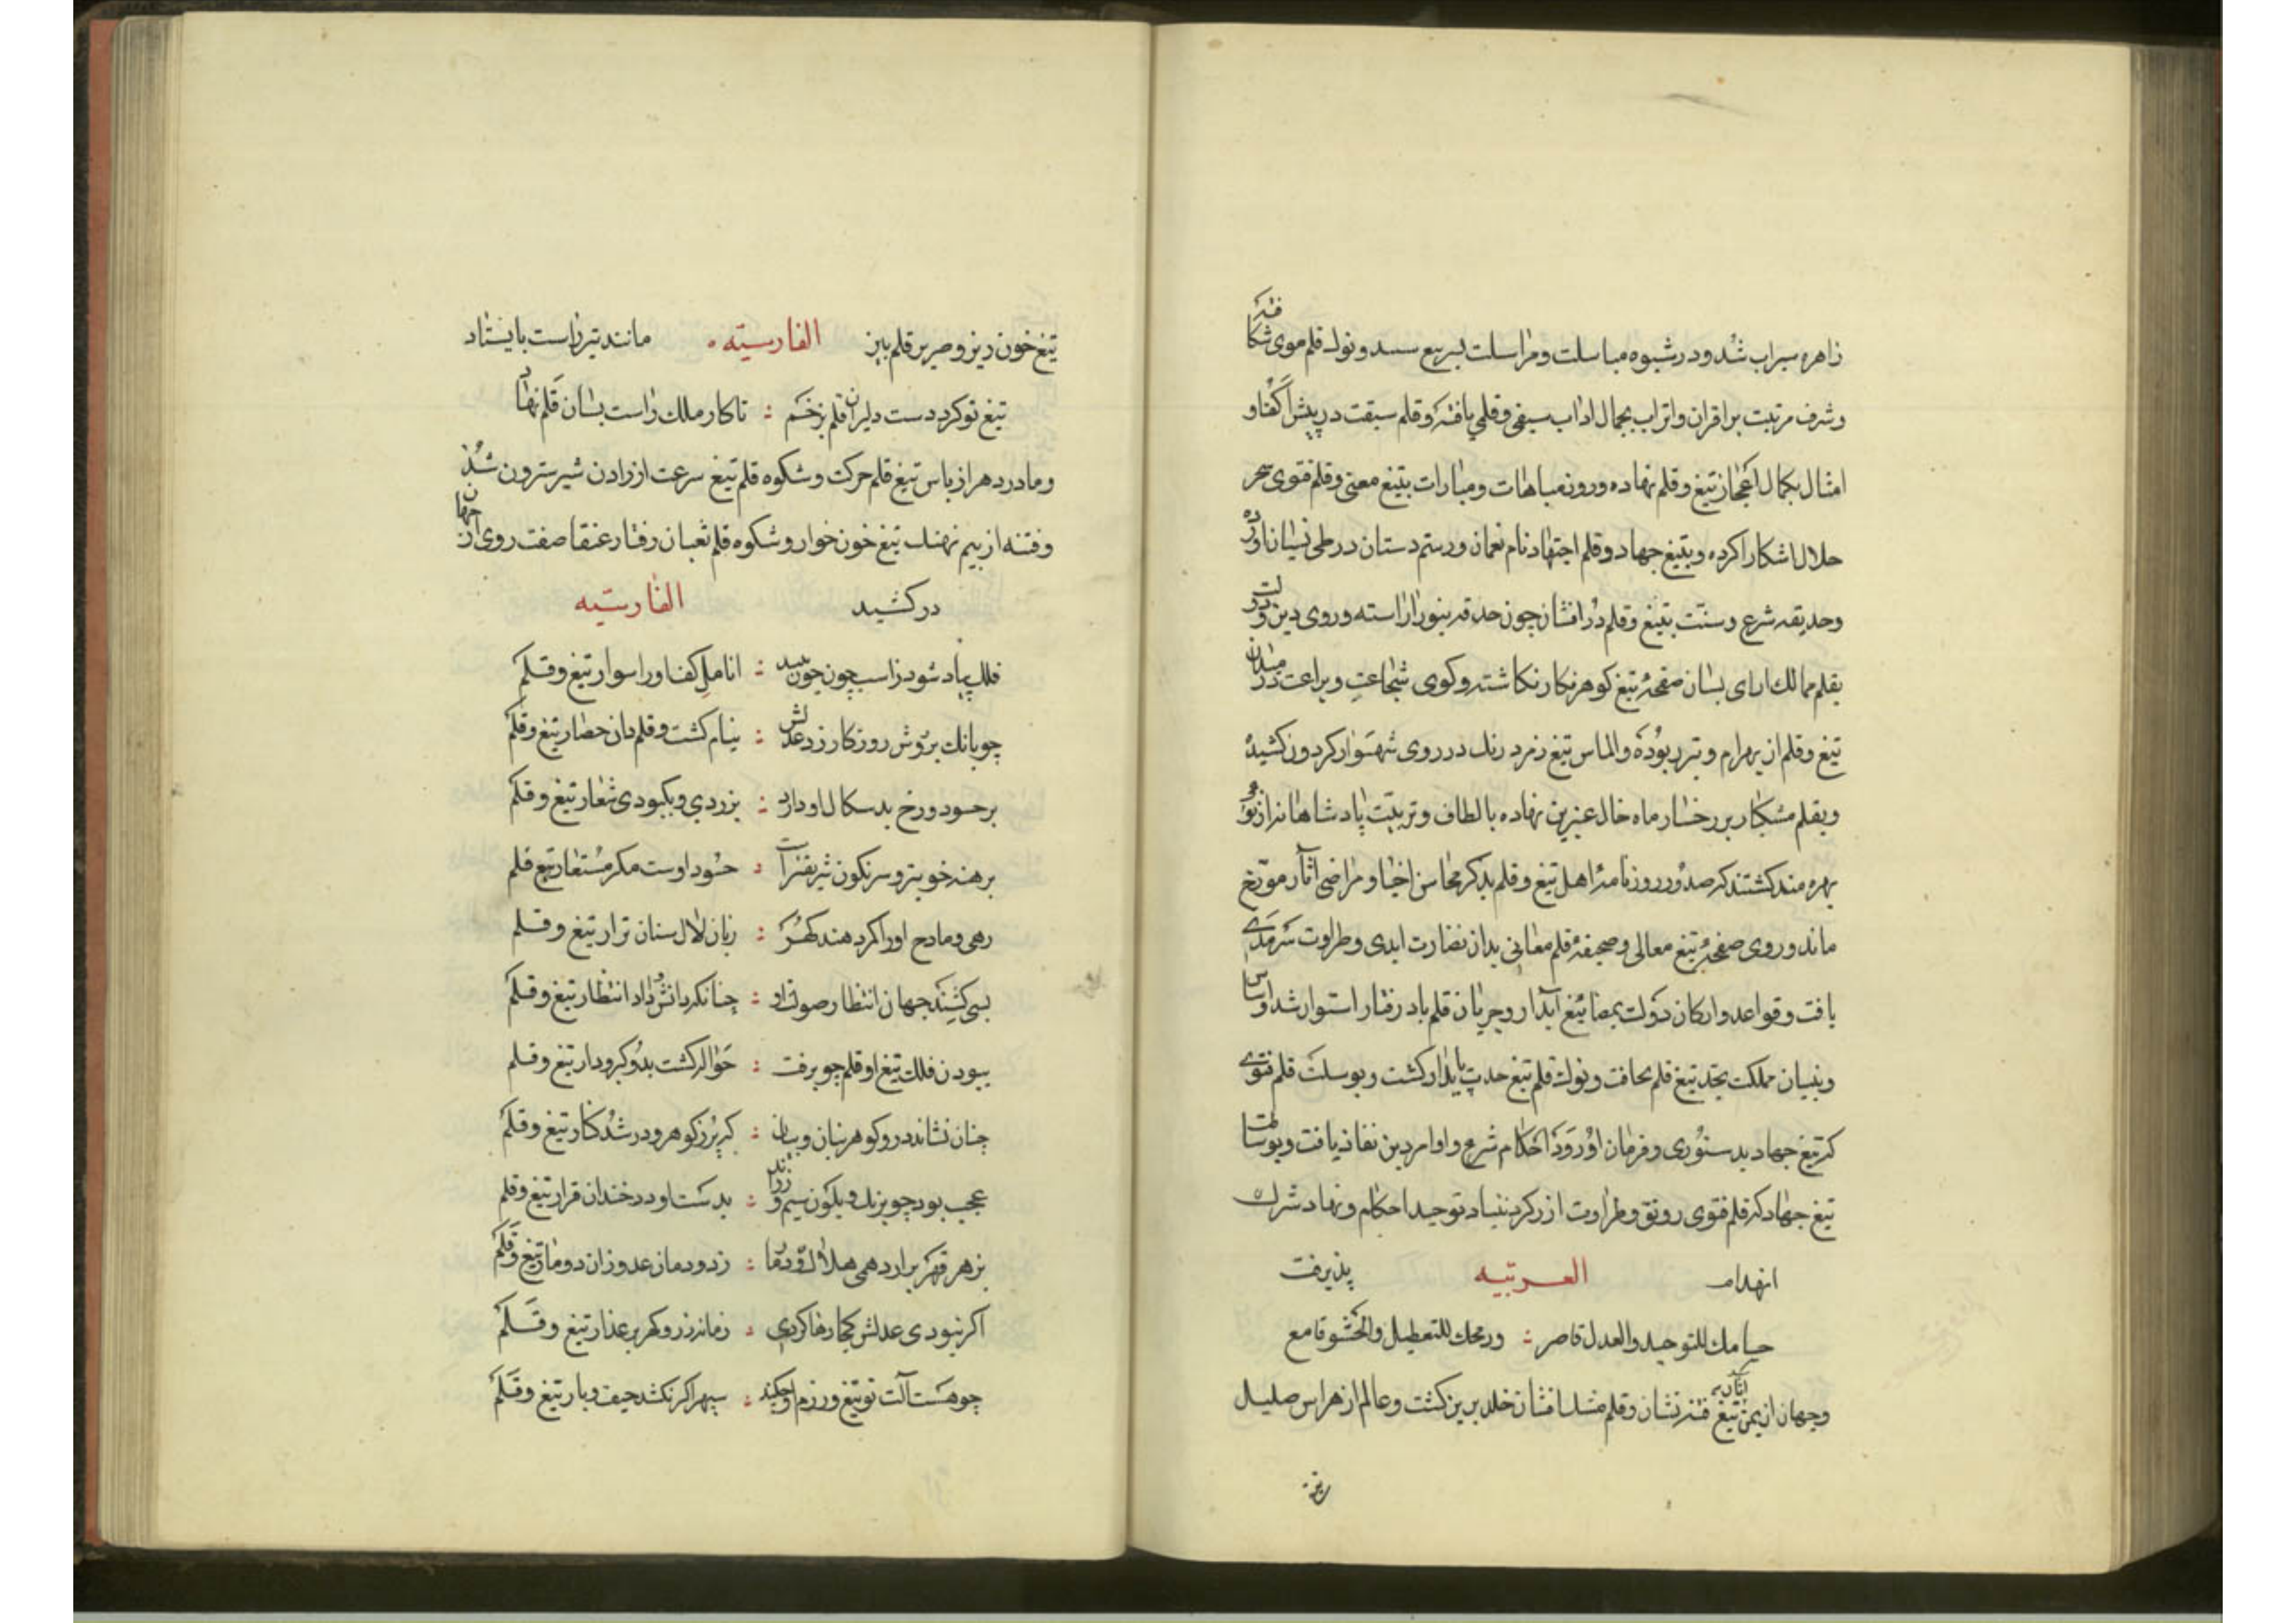 زاهره سیراب شد و در شیوه مباسلت و مراسلت بسریع سند و نوك قلم موی شکافته
و شرف مرتبت بر اقران و اتراب بجمال اداب سیفی و قلمی یافته و قلم سبقت در پیش اکفا و
امثال بکمال اعجاز تیغ و قلم نهاده و روز مباهات و مبارات بتیغ معنی و قلم فتوی سحر
حلال اشکارا کرده و بتیغ جهاد و قلم اجتهاد نام نعمان و رستم دستان در طی نسیان اورده
و حدیقه شرع و سنت بتیغ و قلم درافشان چون حدقه بنور اراسته و روی دین و دولت
بقلم ممالك ارای بسان صفحهٔ تیغ کوهر نکار نکاشته و کوی شجاعت و براعت در میدان
تیغ و قلم از بهرام و تیر ربوده و الماس تیغ زمرد رنك در روی شهسوار کردون کشیده
و بقلم مشکبار بر رخسار ماه خال عنبرین نهاده بالطاف و تربیت پادشاهانه از
بهره مند کشتند که صدور روزنامهٔ اهل تیغ و قلم بذکر محاسن اخبار و مراضی اثار مورخ
ماند و روی صفحهٔ تیغ معالی و صحیفهٔ قلم معانی بدان نضارت ابدی و طراوت سرمدی
یافت و قواعد و ارکان دولت بمضا تیغ ابدار و جریان قلم باد رفتار استوار شد و اساس
و بنیان مملکت بحد تیغ قلم نحافت و نوك قلم تیغ حدت پایدار کشت و بوسیلت قلم فتوی
که تیغ جهاد بدستوری و فرمان او رود احکام شرع و اوامر دین نفاذ یافت و بوساطت
تیغ جهاد که قلم فتوی رونق و طراوت ازو کرد بنیاد توحید احکام و نهاد شرك
انهدام پذیرفت العربیه
حسامك للتوحید و العدل ناصر : و رمحك للتعطیل و الحشو قامع
و جهان از یمن اثار تیغ فتنه نشان و قلم مشك افشان خلد برین کشت و عالم از هراس صلیل
تیغ خون ریز و صریر قلم الفارسیته مانند تیر راست بایستاد
تیغ تو کرد دست دلیران قلم بزخم : تا کار ملك راست بسان قلم نهاد
و مادر دهر از باس تیغ قلم حرکت و شکوه قلم تیغ سرعت از زادن شیر سترون شد
و فتنه از بیم نهنك تیغ خون خوار و شکوه قلم ثعبان رفتار عنقا صفت روی از جهان
در کشید الفارسیه
فلك پیاد شود ز اسب چون چون بیند : انامل کف او را سوار تیغ و قلم
چو بانك بر روش روزکار زد عدلش : نیام کشت و قلم دان حصار تیغ و قلم
بر حسود و رخ بدسکال او دارد : بزردی و بکبودی شعار تیغ و قلم
برهنه خوبتر و سرنکون شریفتراست : حسود اوست مکر مستعار تیغ قلم
رهی و مادح او را کمر دهند کهر : زبان لال سنان ترار تیغ و قلم
بسی کشند جهان انتظار صولت او : چنانکه دانش داد انتظار تیغ و قلم
ببودن فلك تیغ او قلم چو برفت : حواله کشت بدو کیرودار تیغ و قلم
چنان نشاند درو کوهر بنان و بیان : که پر ز کوهر و در شد کنار تیغ و قلم
عجب بود چو بزنك و بکون سیم و زراند : بدست او در خندان قرار تیغ و قلم
بزهر قهر برارد همی هلاك و دمار : ز دودمان عدو زان دو مار تیغ و قلم
اکر نبودی عدلش کجا رها کردی : زمانه زر و کهر بر عذار تیغ و قلم
چو هست آلت تو تیغ و رزم او چکند : سپهر اکر نکشد حیف و بار تیغ و قلم